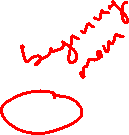 beginning
mom